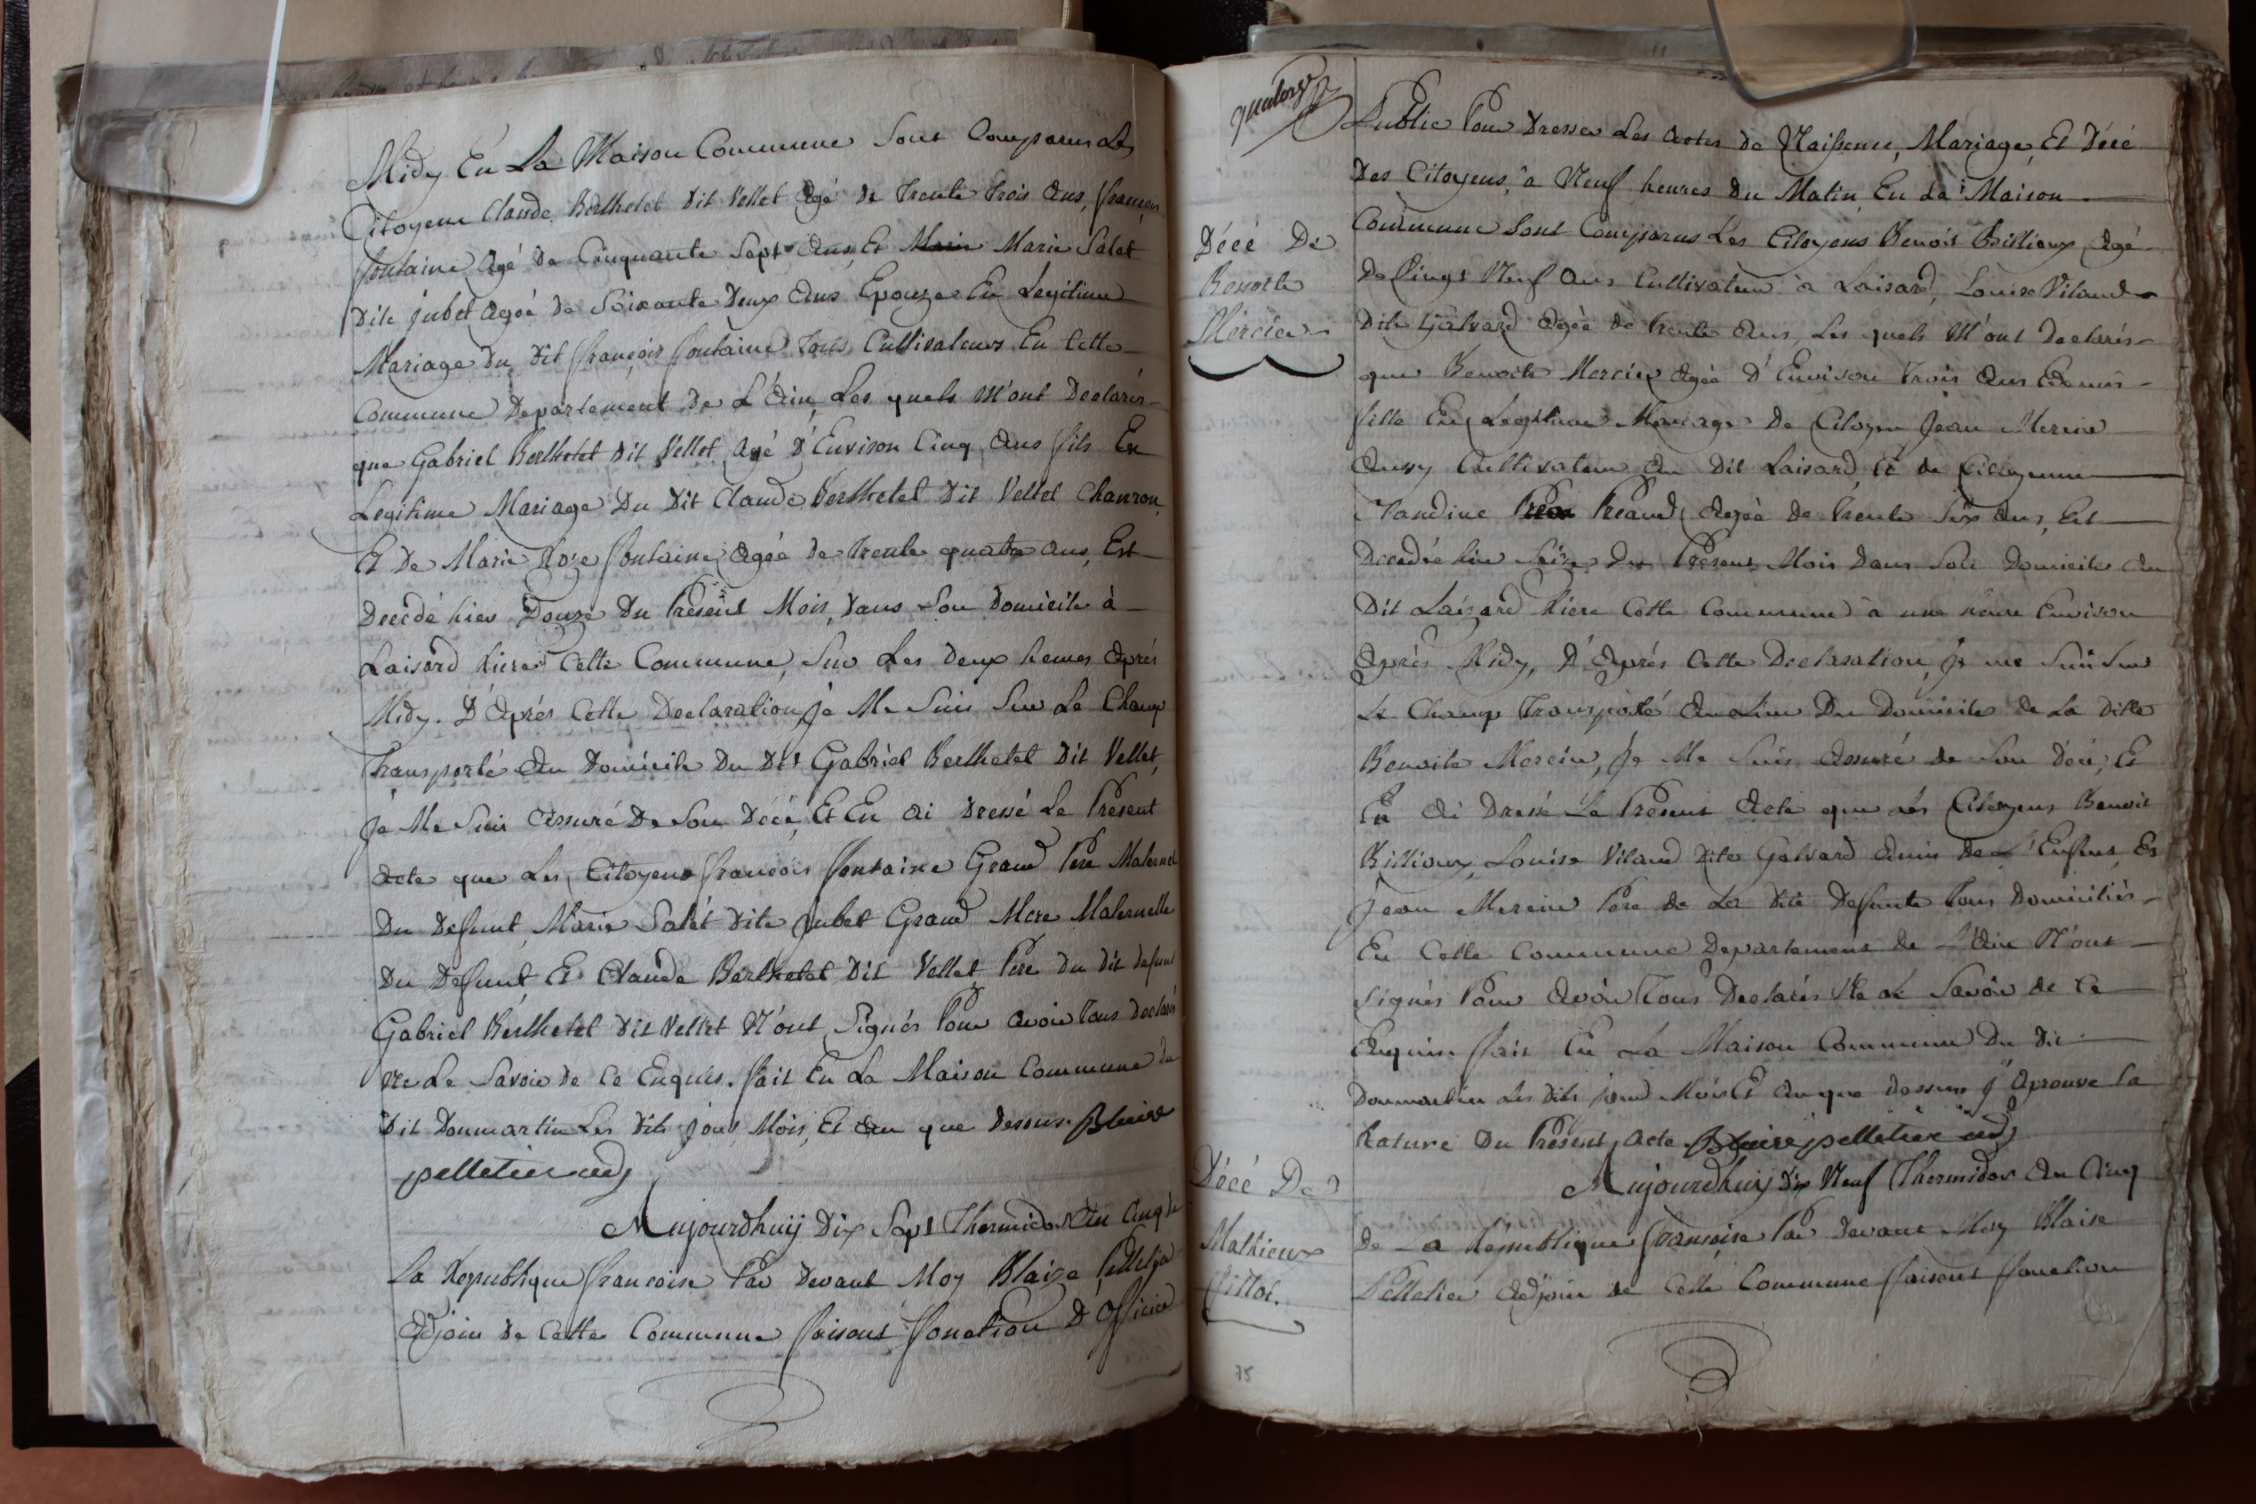 Midy En La Maison Commune Sont Comparus Les
Citoyens Claude Berthelet Dit Vellet Agé de Trente Trois Ans, françois
fontaine Agé De Cinquante Sept Ans, Et Marie Salet
Dite jubet Agée De Soixante Deux Ans Epouze En Legitime
Mariage Du Dit françois fontaine Tous Cultivateurs En Cette
Commune Departement De L'Ain, Les quels M'ont Declarés
que Gabriel Berthelet Dit Vellet Agé D'Environ Cinq Ans fils En
Legitime Mariage Du Dit Claude Berthelet Dit Vellet
Et De Marie Roze fontaine Agée de Trente quatre ans, Est
Decédé hier Douze Du Présent Mois, Dans Son Domicile à
Laisard Riere Cette Commune, Sur Les Deux heures Aprés
Midy. D'Aprés Cette Declaration, Je Me Suis Sur Le Champ
Transporté Au Domicile Du Dit Gabriel Berthelet Dit Vellet,
Je Me Suis Assuré De Son Décé, Et En ai Dressé Le Présent
Acte que Les Citoyens françois fontaine Grand Pere Maternel
Du Defunt, Marie Salét Dite jubet Grand Mere Maternelle
Du Defunt Et Claude Berthelet Dit Vellet Pere Du Dit defunt
Gabriel Berthelet Dit Vellet N'ont Signés Pour avoir Tous declarés
Ne Le Savoir De Ce Enquis. fait En La Maison Commune du
Dit Donmartin Les Dits jour Mois, Et An que Desous. Blaise
pelletier adj
Aujourdhuij Dix Sept Thermidor An Cinq de
La Republique francoise Par Devant Moy Blaize
Adjoin De Cette Commune faisant fonction D'Officier
quatorze
Public Pour Dresser Les Actes De Naissence, Mariage, Et Décé
Des Citoyens, à Neuf heures Du Matin En La Maison
Commune Sont Comparus Les Citoyens Benoit Billioux Agé
De Vingt Neuf Ans Cultivateur à Laisard, Louise Vilaud
Dite Galvard Agée de Trente Ans, Les quels M'ont Declarés
que Benoite Mercier Agée D'Environ Trois Ans
fille En Legitime Mariage De Citoyen Jean Mercier
Aussy Cultivateur Au Dit Laisard, Et de Citoyenne
Claudine Preaud, Agée de Trente Six Ans, Est
Decedée hier Seize Du Présent Mois Dans Son Domicile Au
Dit Laisard Riere Cette Commune à une heure Environ
Aprés Midy, D'Aprés Cette Declaration, je me Suis Sur
Le Champ Transporté Au Lieu Du Domicile De La Dite
Benoite Mercier, Je Me Suis Assuré de Son Décé, Et
En Ai Dressé Le Présent Acte que Les Citoyens Benoit
Billioux, Louise Vilaud Dite Galvard Amis de L'Enfant, Et
Jean Mercier Pere De La Dite Defunte Tous Domiciliés
En Cette Commune Departement de L'Ain N'ont
Signés Pour Avoir Tous Declarés Ne Le Savoir de Ce
Enquis. fait En La Maison Commune Du Dit
Donmartin Les Dits jour Mois Et An que Dessus j'Aprouve La
Rature Du Présent Acte Blaise pelletier adj
Aujourdhuij Dix Neuf Thermidor An Cinq
De La Republique francoise Par Devant Moy Blaise
Pelletier Adjoin De Cette Commune faisant fonction
Décé De
Benoite
Mercier
Décé De
Mathieux
75